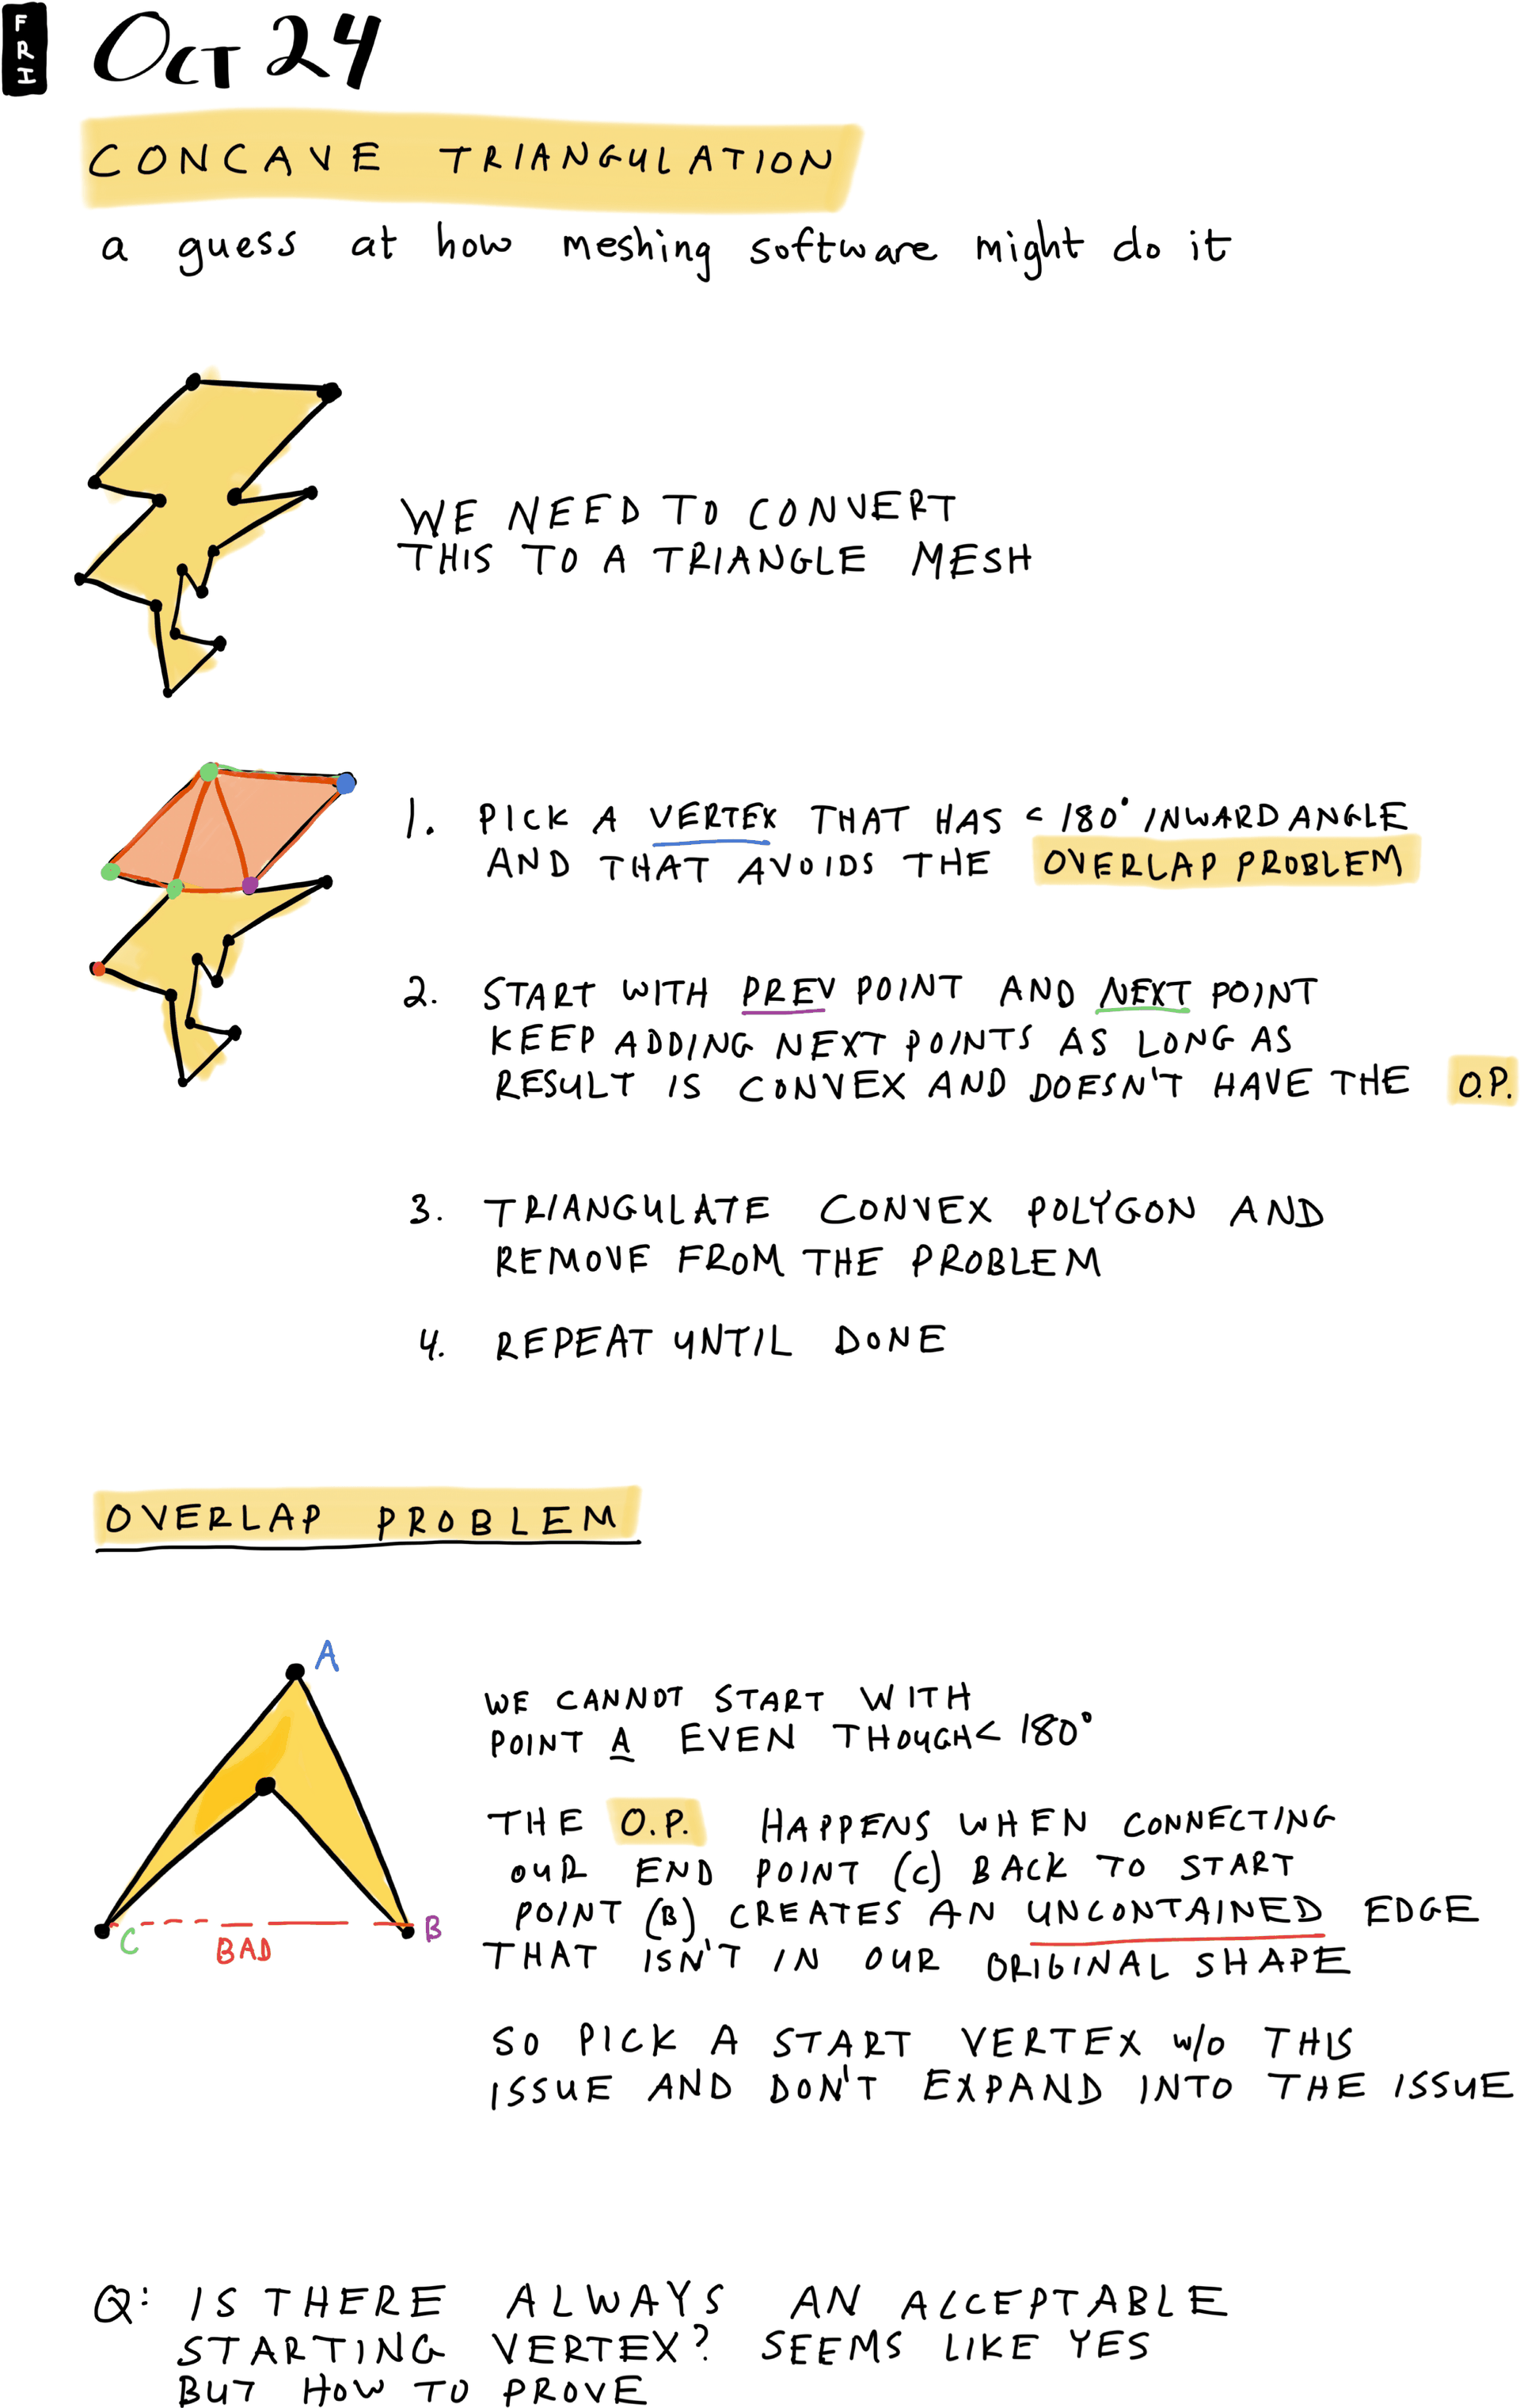 FRI
OCT 24
CONCAVE TRIANGULATION
a guess at how meshing software might do it
WE NEED TO CONVERT
THIS TO A TRIANGLE MESH
1. PICK A VERTEX THAT HAS < 180° INWARD ANGLE
AND THAT AVOIDS THE OVERLAP PROBLEM
2. START WITH PREV POINT AND NEXT POINT
KEEP ADDING NEXT POINTS AS LONG AS
RESULT IS CONVEX AND DOESN'T HAVE THE O.P.
3. TRIANGULATE CONVEX POLYGON AND
REMOVE FROM THE PROBLEM
4. REPEAT UNTIL DONE
OVERLAP PROBLEM
A
C
BAD
B
WE CANNOT START WITH
POINT A EVEN THOUGH < 180°
THE O.P. HAPPENS WHEN CONNECTING
OUR END POINT (C) BACK TO START
POINT (B) CREATES AN UNCONTAINED EDGE
THAT ISN'T IN OUR ORIGINAL SHAPE
SO PICK A START VERTEX W/O THIS
ISSUE AND DON'T EXPAND INTO THE ISSUE
Q: IS THERE ALWAYS AN ACCEPTABLE
STARTING VERTEX? SEEMS LIKE YES
BUT HOW TO PROVE